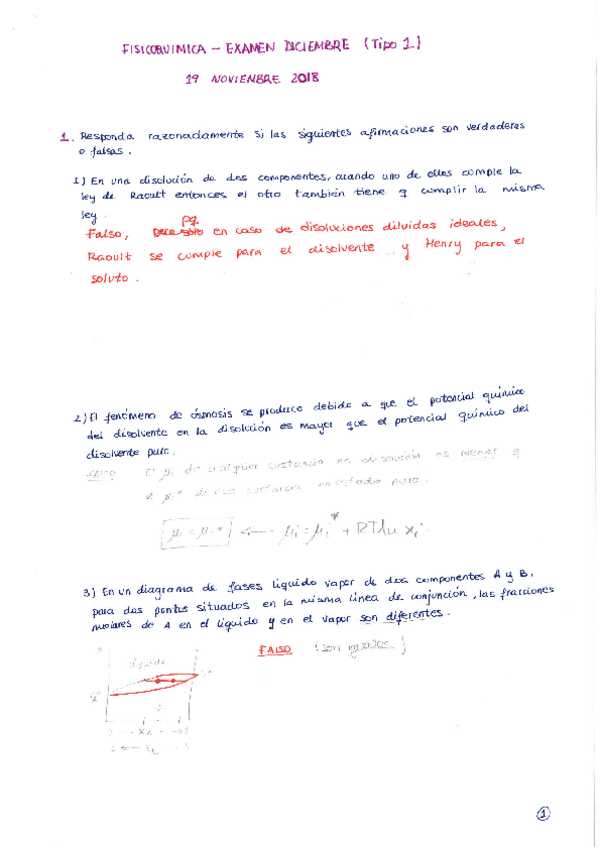 FISICOQUIMICA - EXAMEN DICIEMBRE (Tipo 1)
19 NOVIEMBRE 2018
1. Responda razonadamente si las siguientes afirmaciones son verdaderas
o falsas.
1) En una disolución de dos componentes, cuando uno de ellos cumple la
ley de Raoult entonces el otro también tiene q cumplir la misma
ley.
Falso, pq en caso de disoluciones diluidas ideales,
Raoult se cumple para el disolvente y Henry para el
soluto.
2) El fenómeno de ósmosis se produce debido a que el potencial químico
del disolvente en la disolución es mayor que el potencial químico del
disolvente puro.
FALSO El μi de cualquier sustancia en disolución es menor q
μi* de esa sustancia en estado puro.
μi < μi* ← μi = μi* + RT ln xi
3) En un diagrama de fases líquido vapor de dos componentes A y B,
para dos puntos situados en la misma línea de conjunción, las fracciones
molares de A en el líquido y en el vapor son diferentes.
FALSO (son iguales)
líquido
1